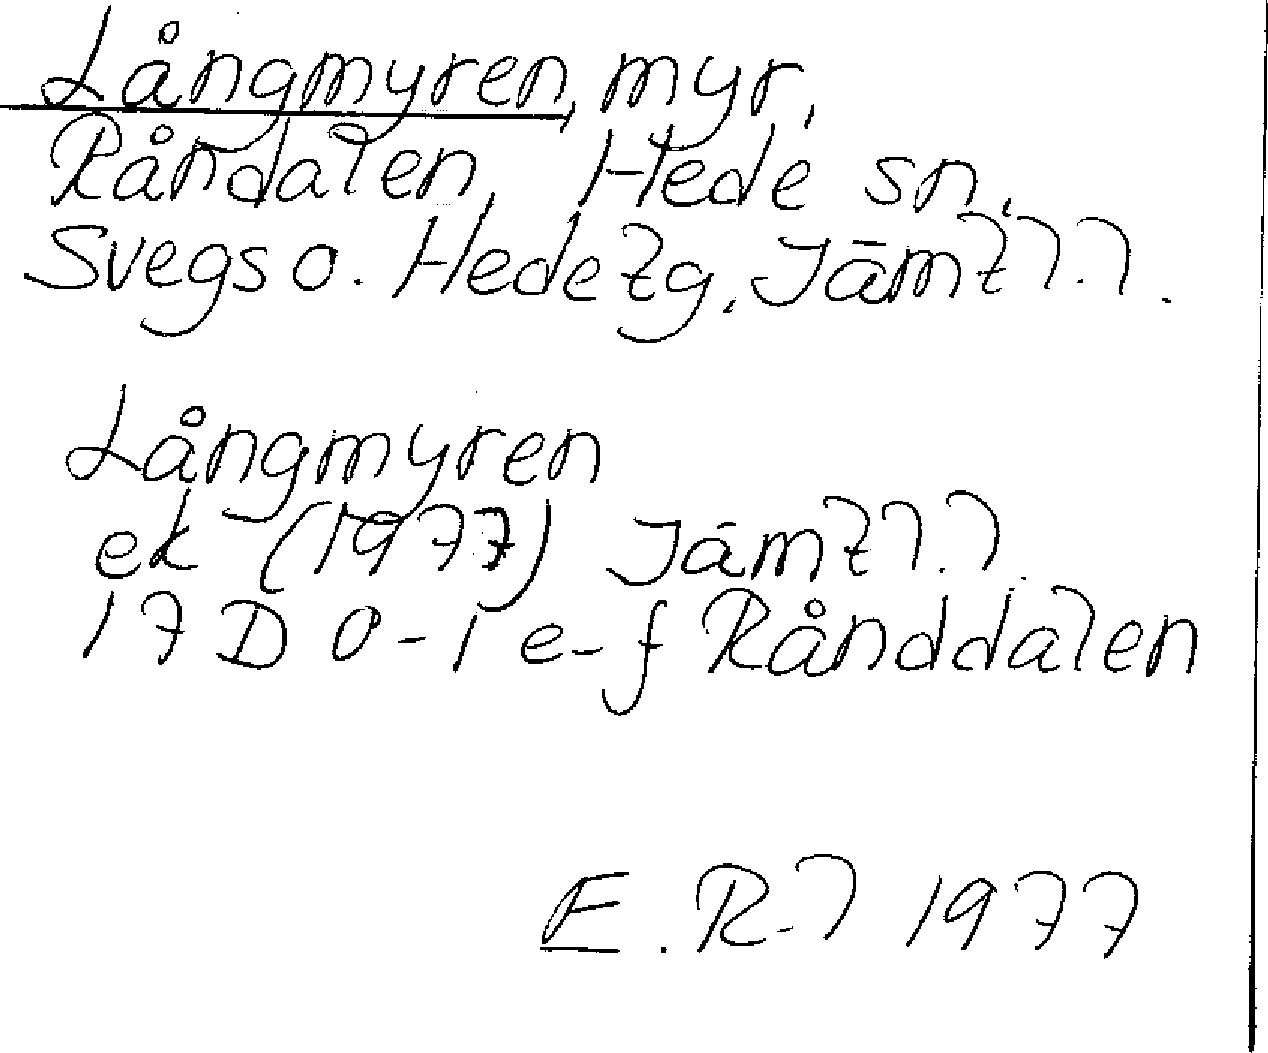 Långmyren, myr,
Råndalen, Hede sn,
Svegs o. Hede tg, Jämtl.l.
Långmyren
ek (1977) Jämtl.l.
17D 0-1 e-f Rånddalen
E. R-l 1977